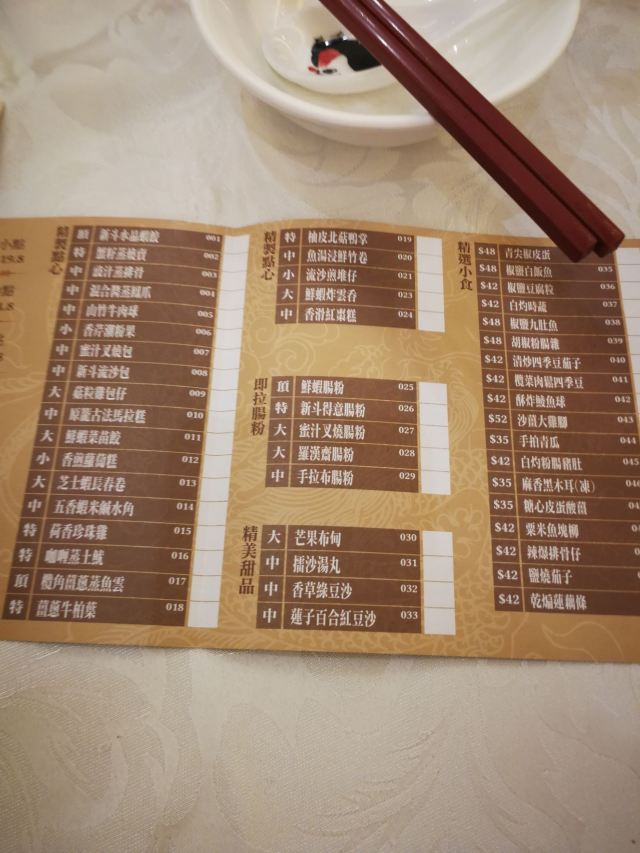 小點
點
精製點心
頂 新斗水晶蝦餃 001
特 蟹籽蒸燒賣 002
中 豉汁蒸排骨 003
中 混合醬蒸鳳爪 004
中 山竹牛肉球 005
小 香茜潮粉果 006
中 蜜汁叉燒包 007
中 新斗流沙包 008
大 菇粒雞包仔 009
中 原籠古法馬拉糕 010
大 鮮蝦菜苗餃 011
小 香煎蘿蔔糕 012
大 芝士蝦長春卷 013
中 五香蝦米鹹水角 014
特 荷香珍珠雞 015
特 咖喱蒸土魷 016
頂 欖角薑蔥蒸魚雲 017
特 薑蔥牛柏葉 018
精製點心
特 柚皮北菇鴨掌 019
中 魚湯浸鮮竹卷 020
小 流沙煎堆仔 021
大 鮮蝦炸雲吞 023
中 香滑紅棗糕 024
即拉腸粉
頂 鮮蝦腸粉 025
特 新斗得意腸粉 026
大 蜜汁叉燒腸粉 027
大 羅漢齋腸粉 028
中 手拉布腸粉 029
精美甜品
大 芒果布甸 030
中 擂沙湯丸 031
中 香草綠豆沙 032
中 蓮子百合紅豆沙 033
精選小食
$48 青尖椒皮蛋
$48 椒鹽白飯魚 035
$42 椒鹽豆腐粒 036
$42 白灼時蔬 037
$48 椒鹽九肚魚 038
$48 胡椒粉腸雜 039
$42 清炒四季豆茄子 040
$42 欖菜肉鬆四季豆 041
$42 酥炸鯪魚球 042
$52 沙薑大雞腳 043
$35 手拍青瓜 044
$42 白灼粉腸豬肚 045
$35 麻香黑木耳(凍) 046
$35 糖心皮蛋酸薑
$42 粟米魚塊柳
$42 辣爆排骨仔
$42 鹽燒茄子
$42 乾煸蓮藕條